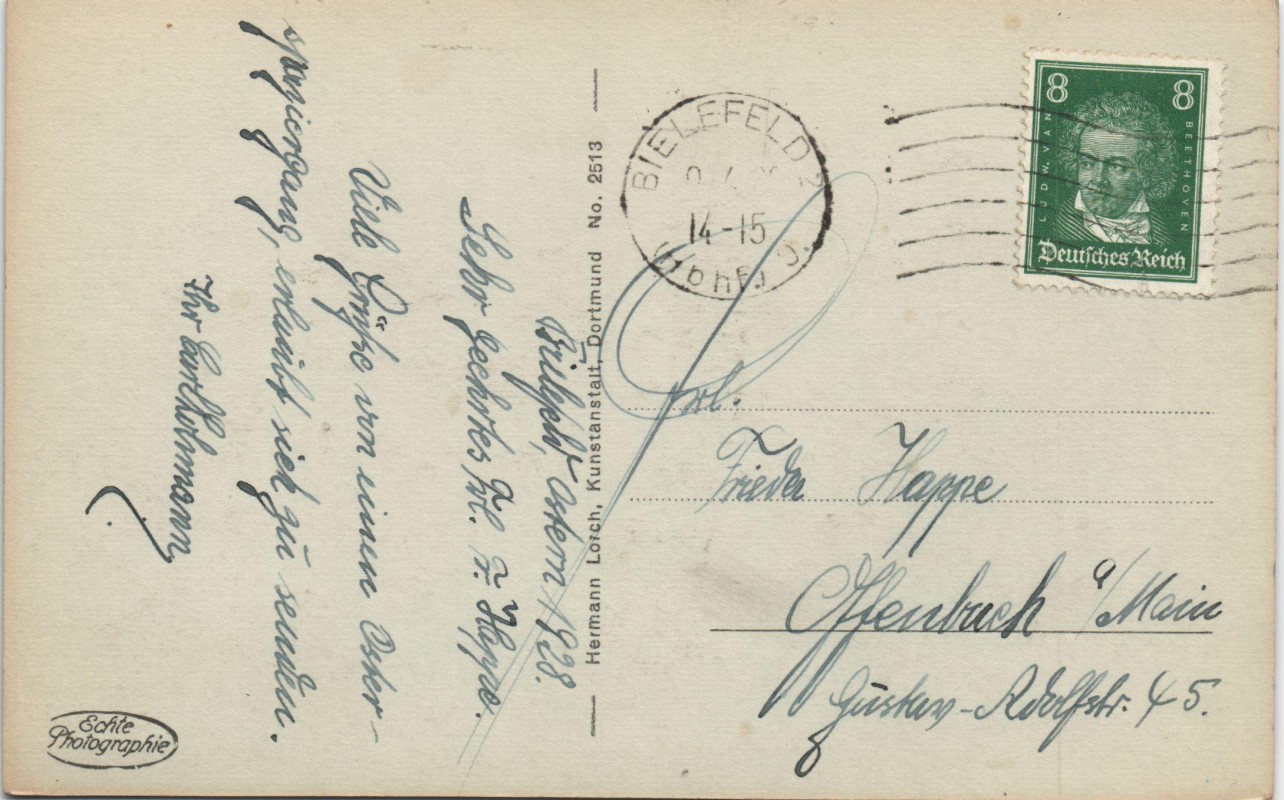 Bielefeld, Ostern 1928.
Sehr geehrtes Frl. F. Happe.
Viele Grüße von einem Oster-
spaziergang, erlaubt sich zu senden.
Ihr Curt Hohmann
Echte
Photographie
Hermann Lorch, Kunstanstalt, Dortmund No. 2513
BIELEFELD 2
14-15
(Hbhf.)
8 8
LUDW. VAN
BEETHOVEN
Deutsches Reich
Frl.
Frieda Happe
Offenbach a/Main
Gustav-Adolfstr. 45.